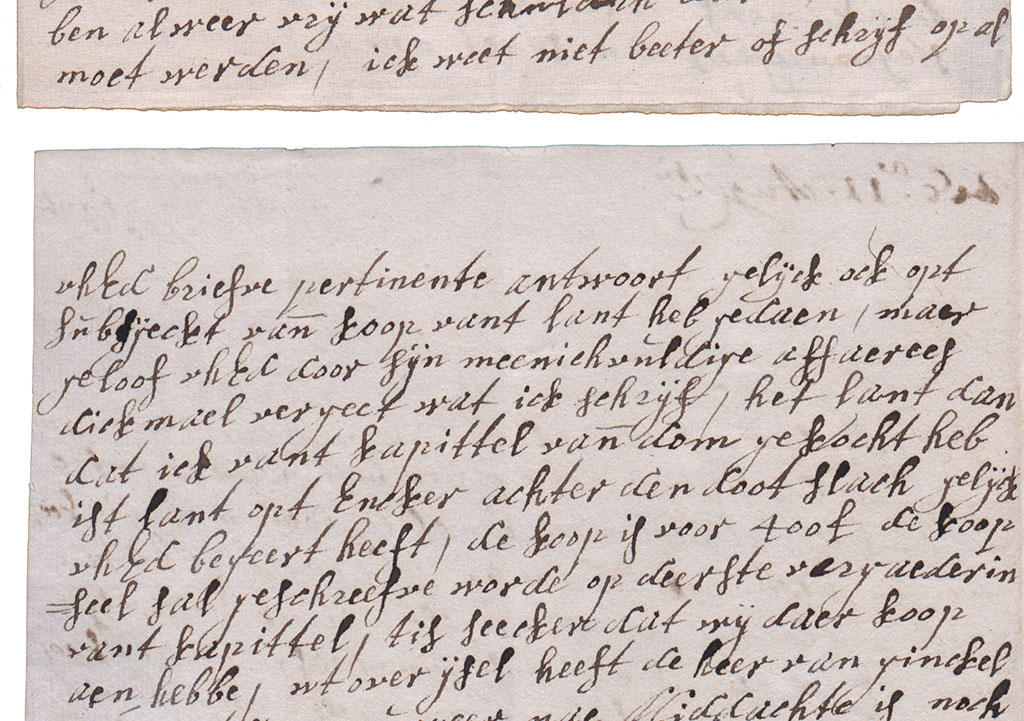 ben alweer vrij wat schuldich
moet werden, ick weet niet beeter of schrijf op al
uhEd briefve pertinente antwoort gelijck ock opt
subsjeckt van̄ koop vant lant heb gedaen, maer
geloof uhEd door sijn meenichvuldige affaerees
dickmael vergeet wat ick schrijf, het lant dan
dat ick vant kapittel van̄ dom gekocht heb
ist lant opt Encker achter den dootslach gelijck
uhEd begeert heeft, de koop is voor 400f de koop
=seel sal geschreefve worde op deerste vergaederin
vant kapittel, tis seecker dat wij daer koop
aen hebbe, ut overijsel heeft de heer van ginckel
Middachte is noch